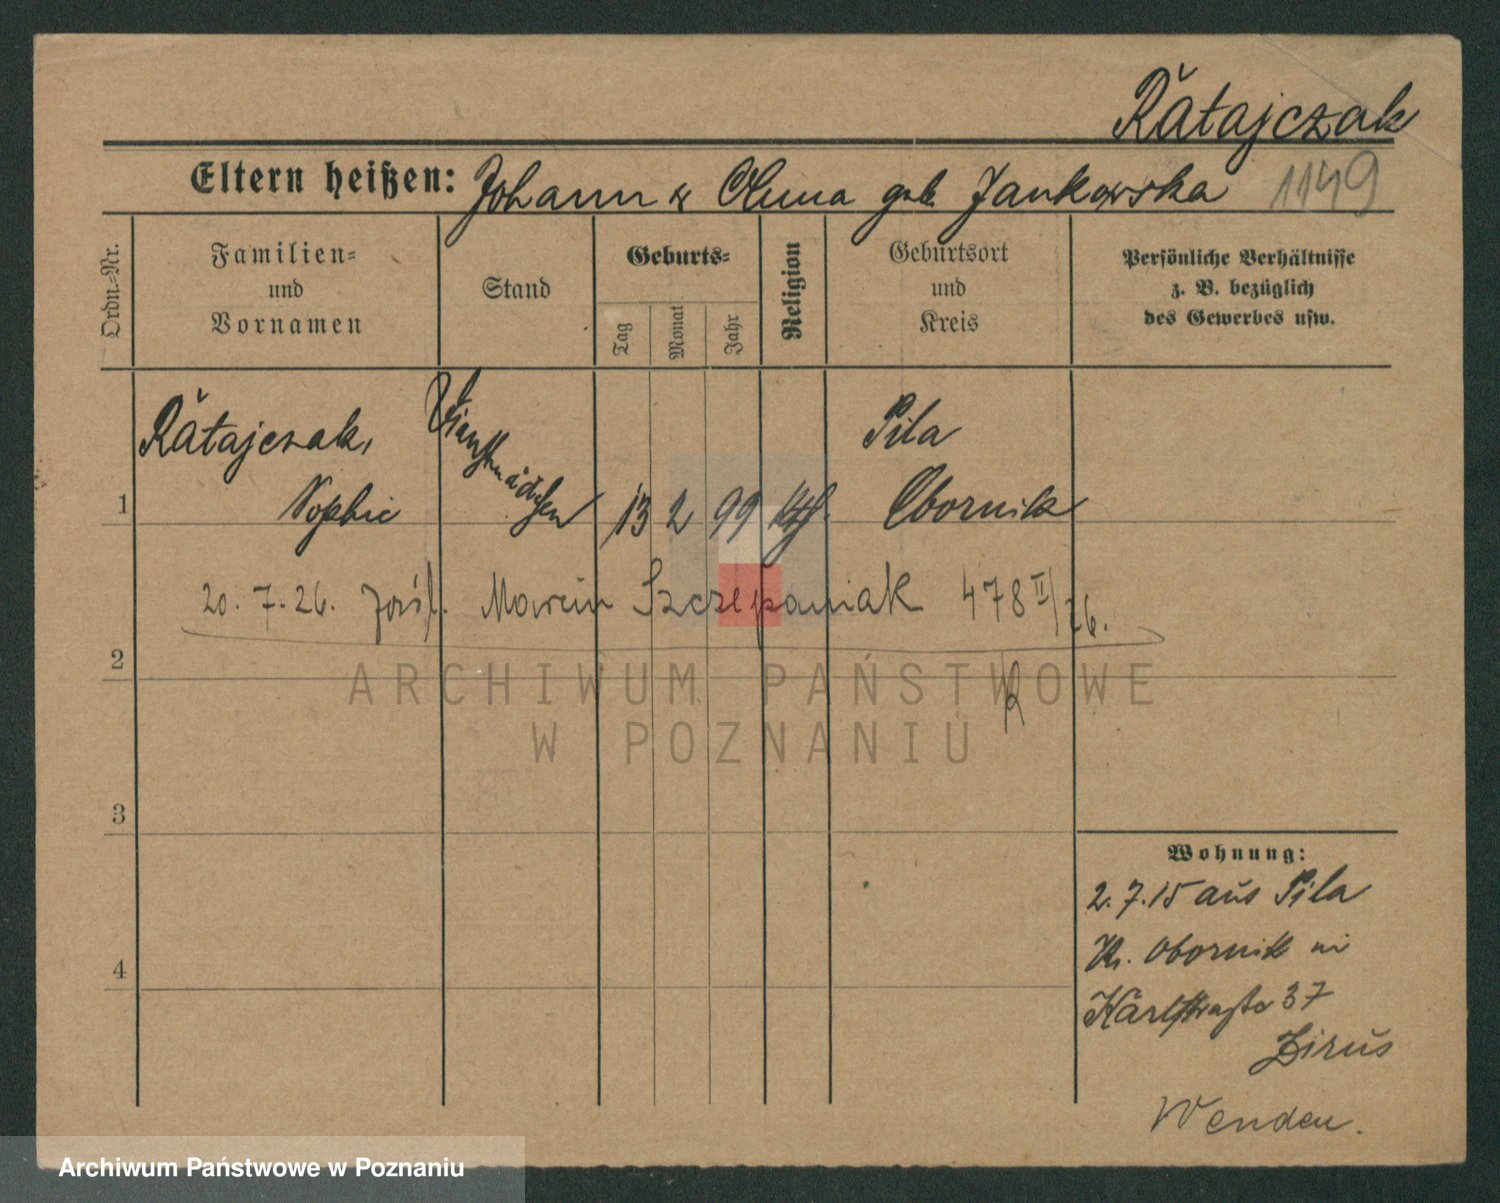 Ratajczak
Eltern heißen: Johann u Anna geb. Jankowska 1149
Ordn.-Nr.
Familien- und Vornamen
Stand
Geburts-
Tag
Monat
Jahr
Religion
Geburtsort und Kreis
Persönliche Verhältnisse
z. B. bezüglich
des Gewerbes usw.
1
Ratajczak,
Sophie
Dienstmädchen
13 2 99 kth
Pila
Obornik
20. 7. 26. zaśl. Marcin Szczepaniak 478 II/26.
2
R
3
4
Wohnung:
2. 7. 15 aus Pila
Kr. Obornik
Karlstraße 37
Wenden.
ARCHIWUM PAŃSTWOWE
W POZNANIU
Archiwum Państwowe w Poznaniu